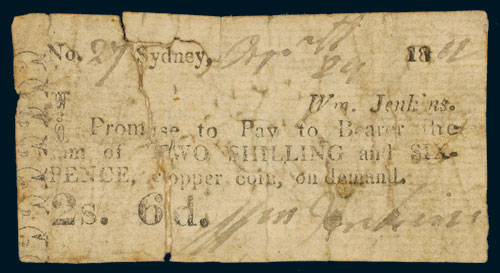 No. 27 Sydney, 18
Wm. Jenkins.
Promise to Pay to Bearer the
sum of TWO SHILLING and SIX-
PENCE, copper coin, on demand.
2s. 6d. Wm Jenkins